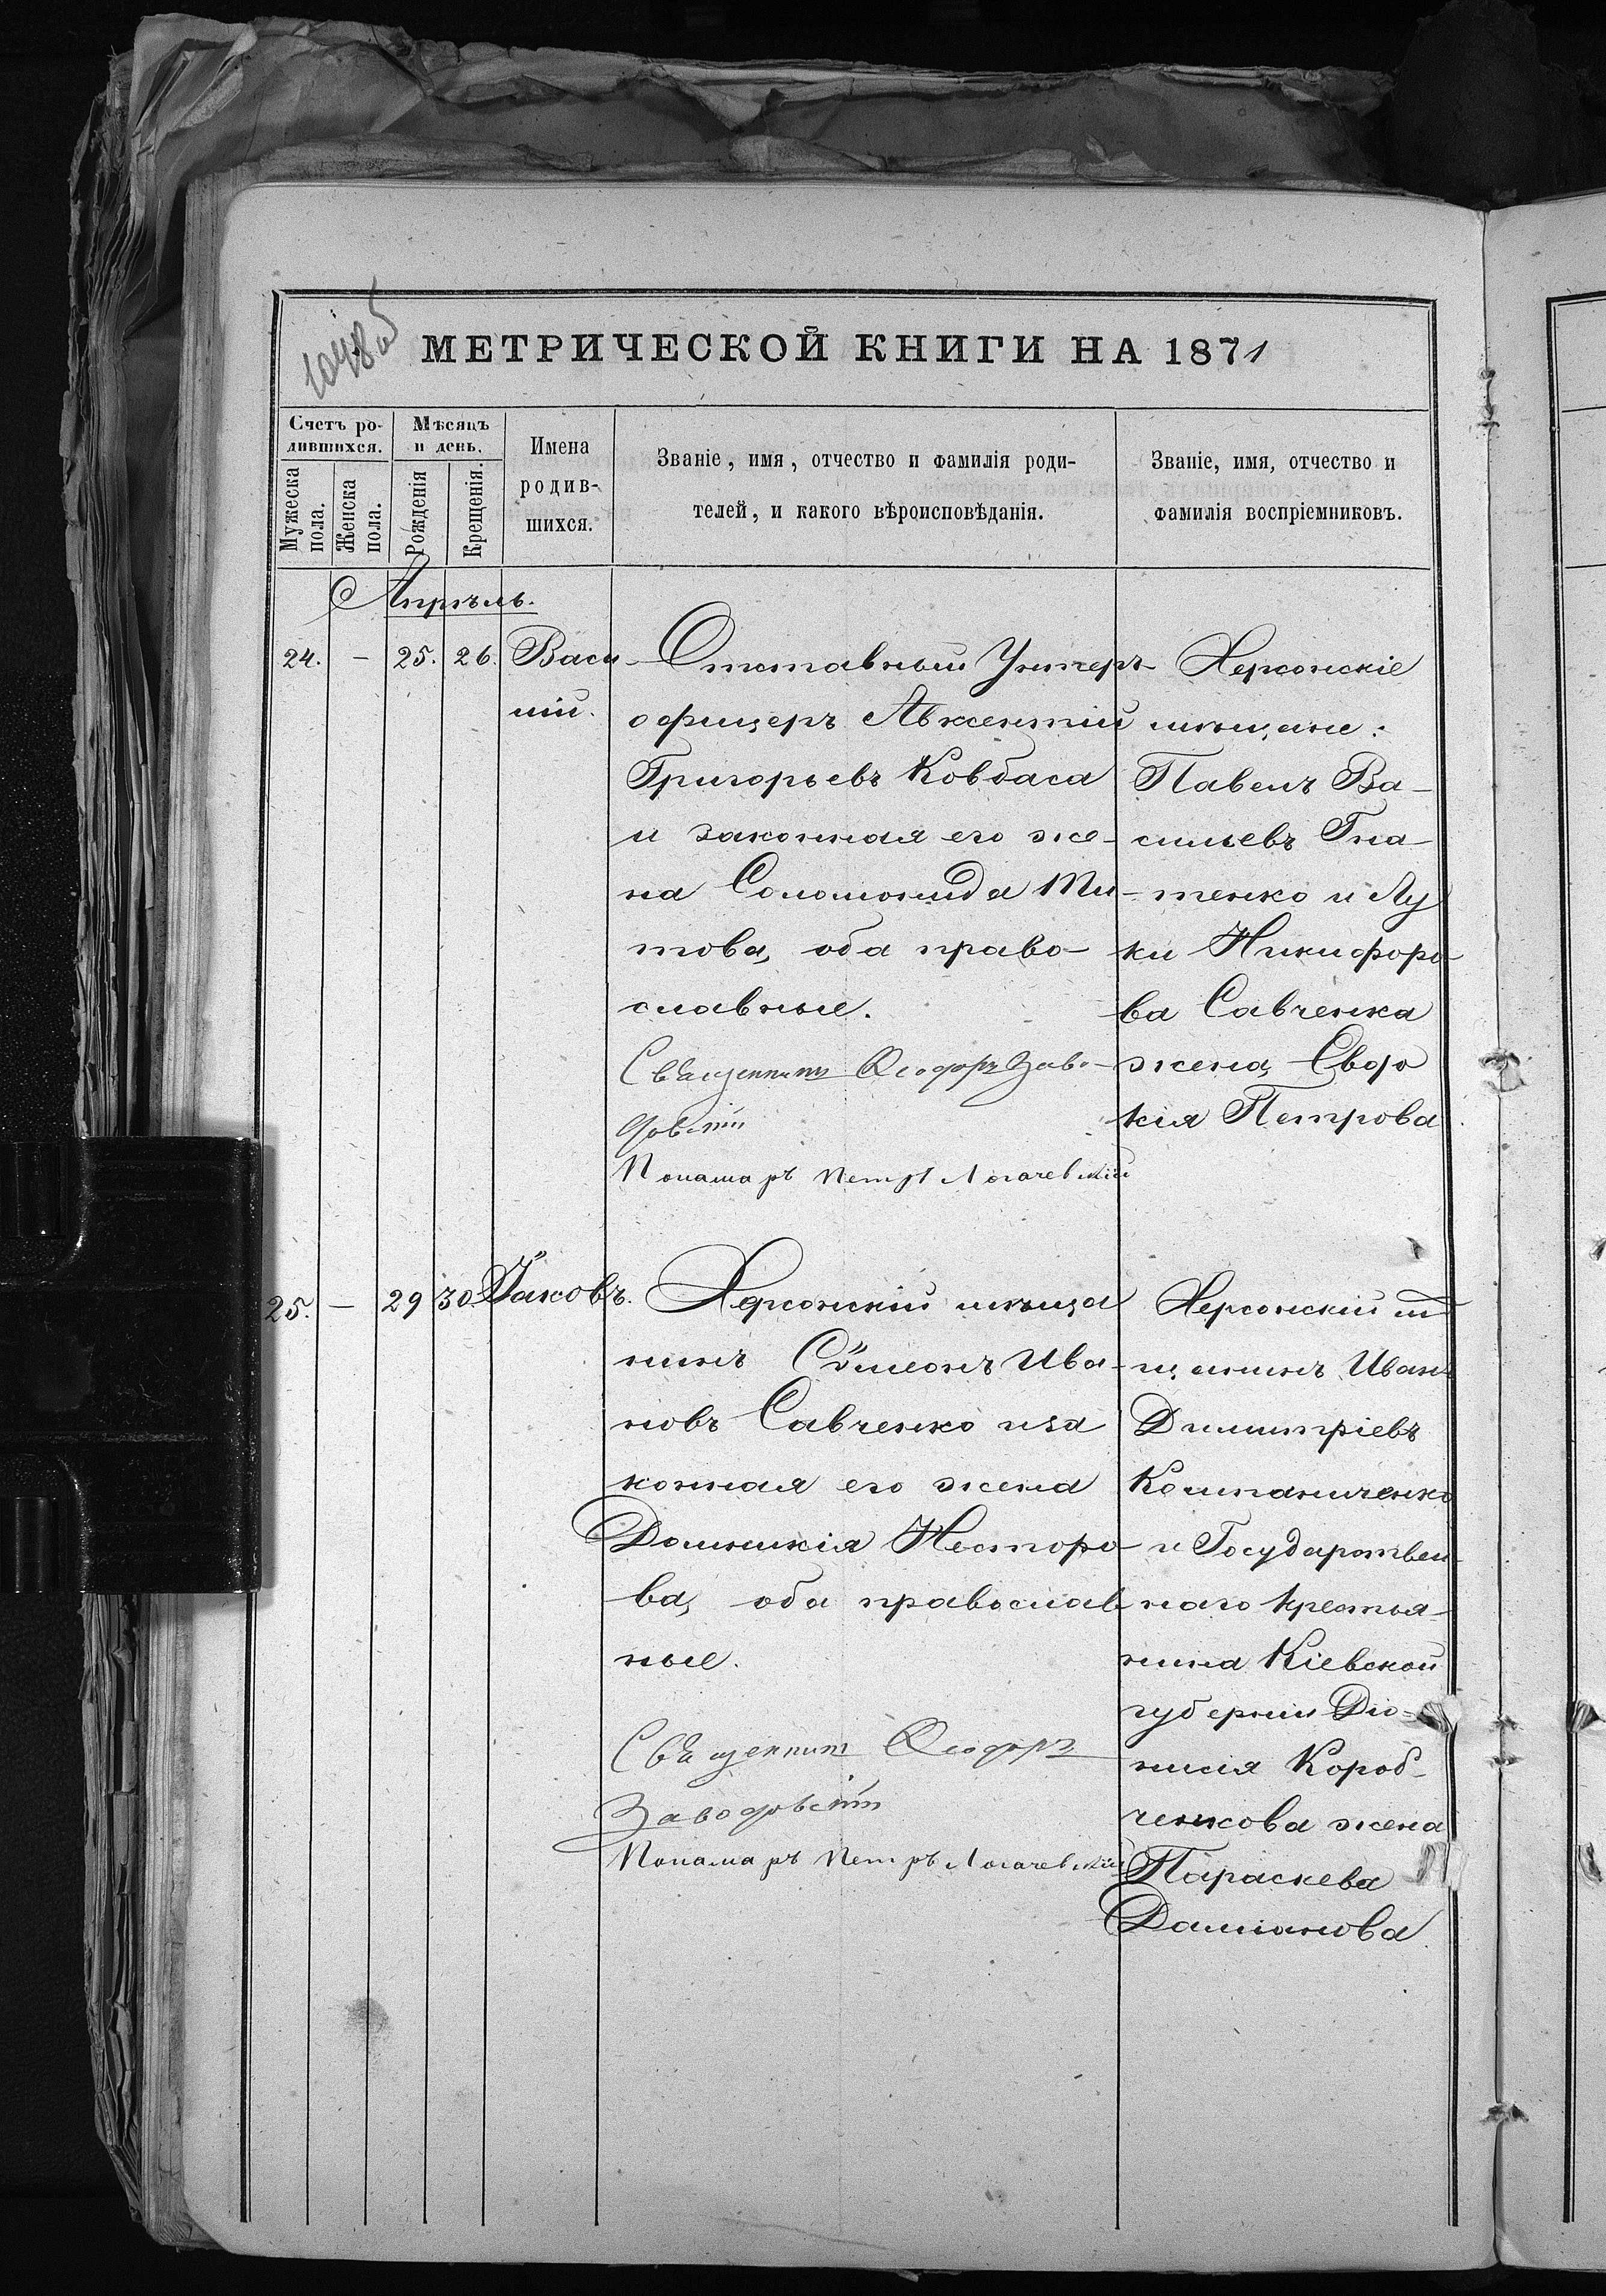 1048б
МЕТРИЧЕСКОЙ КНИГИ НА 1871
Счетъ ро-
дившихся.
Мужеска
пола.
Женска
пола.
Мѣсяцъ
и день.
Рожденія
Крещенія.
Имена
родив-
шихся.
Званіе, имя, отчество и фамилія роди-
телей, и какого вѣроисповѣданія.
Званіе, имя, отчество и
фамилія воспріемниковъ.
Апрѣль.
24. — 25. 26. Васи
лій.
Отставный Унтеръ-
офицеръ Авксентій
Григорьевъ Ковбаса
и законная его же-
на Соломонида Ти-
това, оба право-
славные.
Священникъ Ѳеодоръ Заво-
довскій
Понамаръ Петръ Логачевскій
Херсонскіе
мѣщане:
Павелъ Ва-
сильевъ Гна-
тенко и Лу
ки Никифоро-
ва Савченка
жена, Евдо
кія Петрова
25. — 29 30 Іаковъ.
Херсонскій мѣща
нинъ Сѷмеонъ Ива-
новъ Савченко и за
конная его жена
Домникія Несторо-
ва, оба православ
ные.
Священникъ Ѳеодоръ
Заводовскій
Понамаръ Петръ Логачевскій
Херсонскій мѣ
щанинъ Иванъ
Димитріевъ
Компаниченко
и Государствен-
наго крестья-
нина Кіевской
губерніи Діо-
нисія Короб-
ченкова жена
Параскева
Даміанова